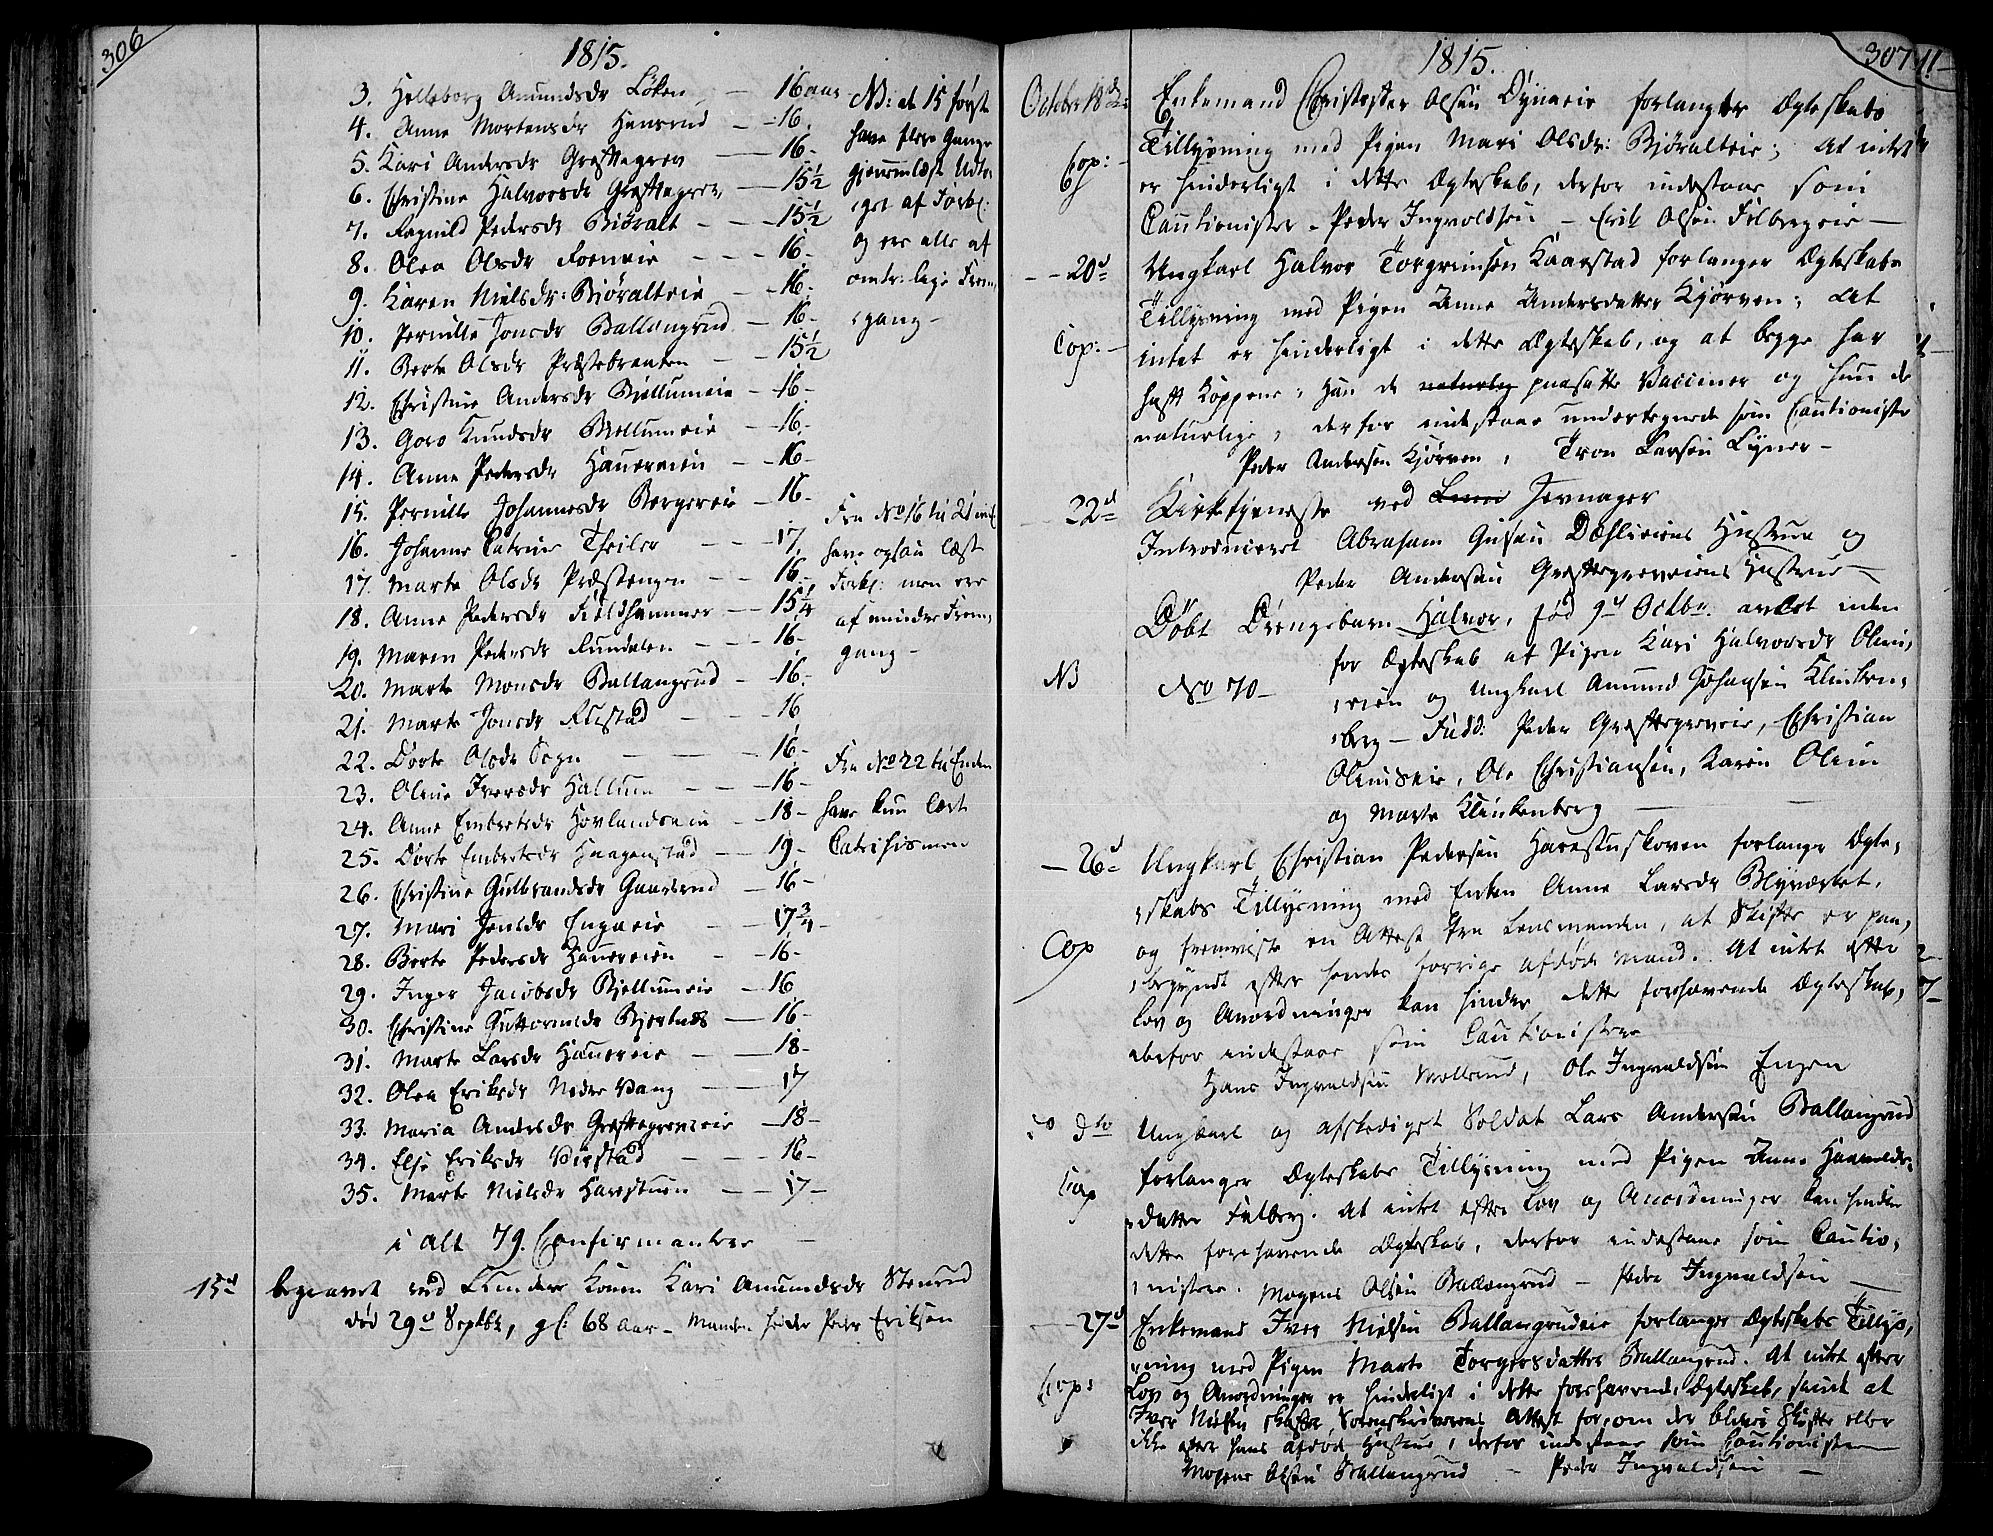 306
1815.
3. Helleborg Amundsdr Löken — 16 aar
4. Anne Mortensdr Hensrud — 16.
5. Kari Andersdr Græstegrev — 16-
6. Christine Halvorsdr Græstegrev — 15½
7. Ragnild Pedersdr Biöralt — 15½
8. Olea Olsdr — 16-
9. Karen Nielsdr: Biöralteie — 16-
10. Pernille Jonsdr Ballangrud — 16-
11. Berte Olsdr Præstebraaten — 15½
12. Christine Andersdr Biellumeie — 16-
13. Goro Knudsdr Biellumeie — 16-
14. Anne Pedersdr Hauereien — 16-
15. Pernille Johannesdr Bergereie — 16-
16. Johanne Catrine Theiler — 17.
17. Marte Olsdr Præstengen — 16-
18. Anne Pedersdr Fieldhammer — 15¼
19. Maren Pedersdr Rundelen — 16-
20. Marte Monsdr Ballangrud — 16-
21. Marte Jonsdr Rustad — 16
22. Dorte Olsdr Sogn — 16-
23. Olene Iversdr Hallum — 16-
24. Anne Embretsdr Hovlandseie — 18-
25. Dorte Embretsdr Haagenstad — 19-
26. Christine Gulbrandsdr Gaarderud — 16-
27. Mari Joensdr Engneie — 17¾-
28. Berte Pedersdr Hauereien — 16-
29. Inger Jacobsdr Biellumeie — 16
30. Christine Guttormsdr Bjertnæs — 16-
31. Marte Larsdr Hauereie — 18-
32. Olea Eriksdr Neder Vang — 17
33. Maria Andersdr Græstegreveie — 18-
34. Else Eriksdr Viestad — 16-
35. Marte Nielsdr Harestuen — 17-
i alt 79. Confirmantere
NB: de 15 første
have flere Gange
gjennemlæst Udto-
get af Forkl:
og ere alle af
omtr: lige Frem-
gang-
Fra No 16 til 21 incl
have ogsaa læst
Forkl: men ere
af mindre Frem-
gang-
Fra No 22 til Enden
have kun lært
Catechismen
15d begravet ved Lunder Konen Kari Amundsdr Stenrud
död 29d Septbr, gl: 68 Aar- Manden heder Peder Eriksen
307
1815.
October 18de Enkemand Christopher Olsen Dynneie forlanger Ægteskabs
Cop: Tillysning med Pigen Mari Olsdr: Biöralteie; At intet
er hinderligt i dette Ægteskab, derfor indestaar som
Cautionister - Peder Ingvoldsen - Erik Olsen Filbergeie-
20d Ungkarl Halvor Torgrimsen Kaarstad forlanger Ægteskabs
Tillysning med Pigen Anne Andersdatter Kjörven; At
Cop: intet er hinderligt i dette Ægteskab, og at begge har
haft Koppene; Han de naturlig paasatte Vacciner og hun de
naturlige, derfor indestaar undertegnede som Cautionister
Peder Andersen Kjörven, Tron Larsen Lyner-
22d Kirketjeneste ved Lun Jevnager
Introduceret Abraham Dæhlieiens Hustrue og
Peder Andersen Græstegreveiens Hustrue-
Döbt Drengebarn Halvor, fød 9d Octbr. avlet uden
for Ægteskab af Pigen Kari Halvorsdr Olim,
NB No 70- eien og Ungkarl Amund Johansen Klinken,
berg - Fadd: Peder Græstegreveie, Christian
Olimseie, Ole Christiansen, Karen Olim
og Marte Klinkenberg
26d Ungkarl Christian Pedersen Harestuskoven forlanger Ægte,
skabs Tillysning med Enken Anne Larsdr Blyværket,
Cop og fremviste en Attest fra Lensmanden, at Skifte er paa,
begyndt efter hendes forrige afdöde Mand. At intet efter
Lov og Anordninger kan hindre dette forehavende Ægteskab,
derfor indestaar som Cautionistere
Hans Ingvaldsen Mellerud, Ole Ingvaldsen Engen
Do Dto Ungkarl og afskediget Soldat Lars Andersen Ballangrud
Cop forlanger Ægteskabs Tillysning med Pigen Anne Haavelds-
datter Filberg. At intet efter Lov og Anordninger kan hindre
dette forehavende Ægteskab, derfor indestaar som Cautio,
nistere. Mogens Olsen Ballangrud - Peder Ingvaldsen -
27d Enkemand Iver Nielsen Ballangrudeie forlanger Ægteskabs Tillys,
ning med Pigen Marte Torgersdatter Ballangrud. At intet efter
Cop: Lov og Anordninger er hinderligt i dette forehavende Ægteskab, samt at
Iver Nielsen skaffer Sorenskriverens Attest for, om der bliver Skifte eller
ikke efter hans afdöde Hustrue, derfor indestaar som Cautionistere
Mogens Olsen Ballangrud - Peder Ingvaldsen -